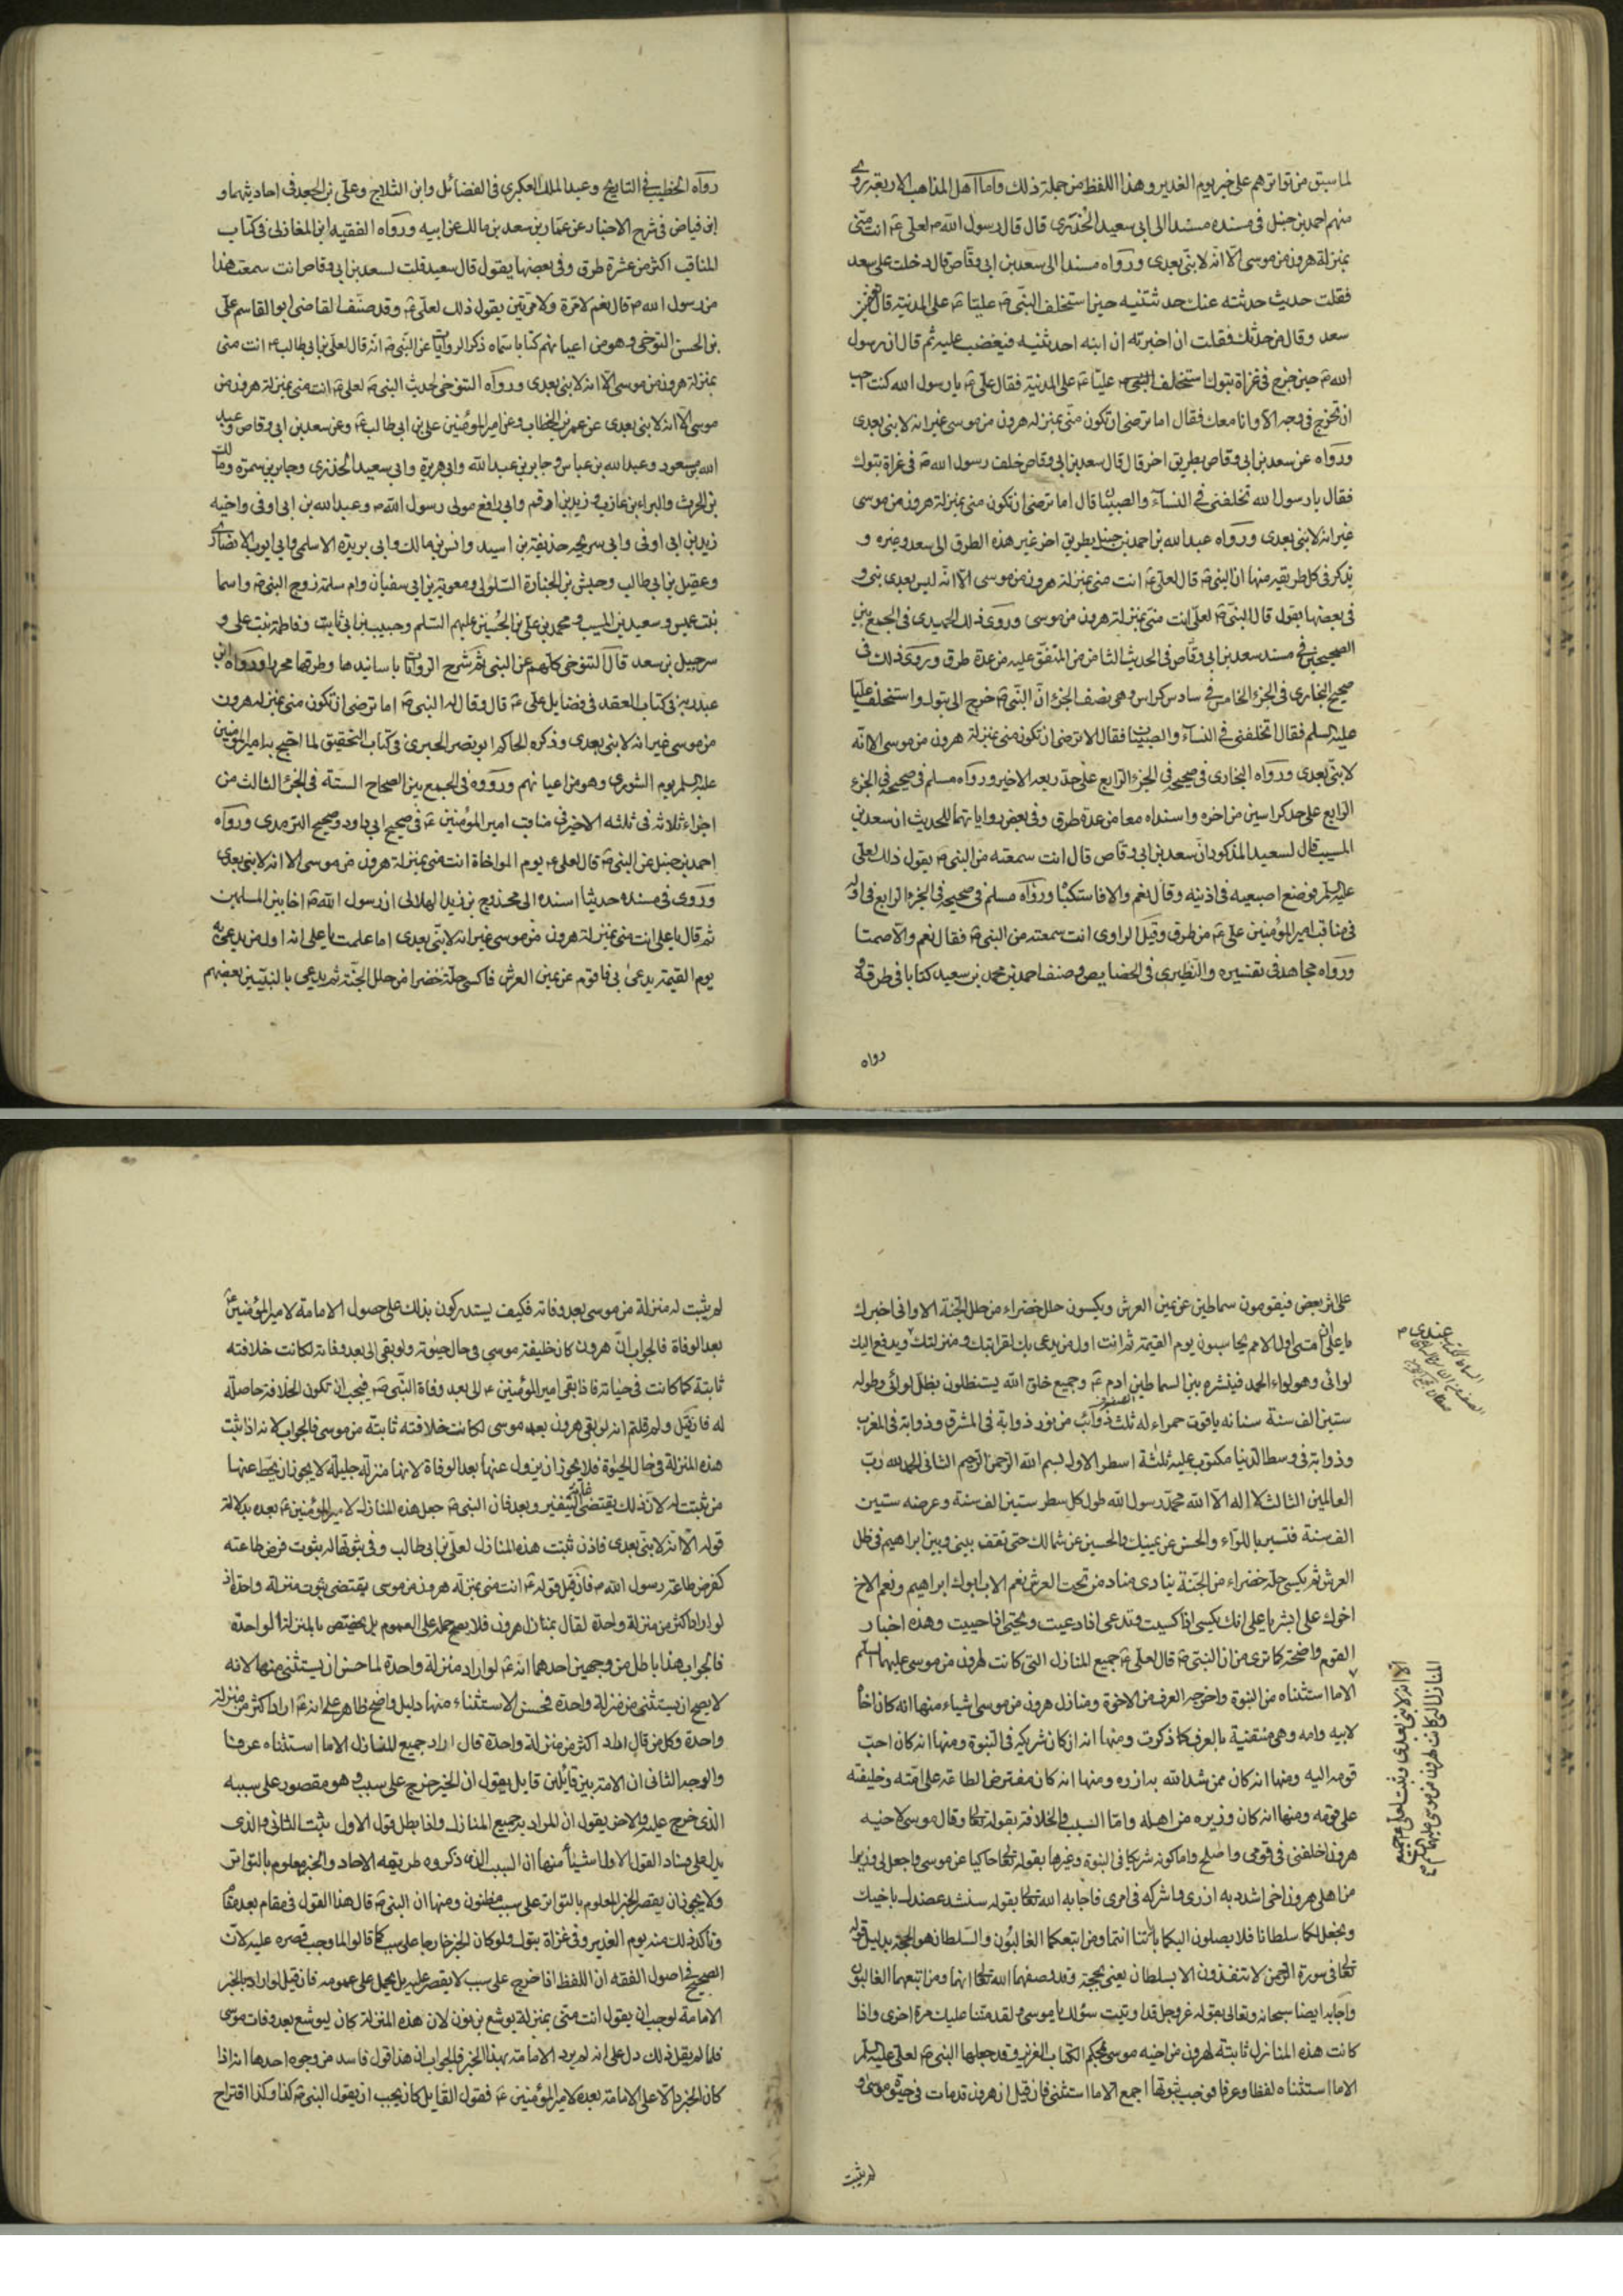 لما سبق من تواترهم على خبر يوم الغدير وهذا اللفظ من جملة ذلك واما اهل المذاهب الاربعة روى
منهم احمد بن حنبل فى مسنده مسندا الى ابى سعيد الخدرى قال قال رسول الله ص لعلى ع انت منّى
بمنزلة هرون من موسى الّا انّه لا نبىّ بعدى ورواه مسندا الى سعد بن ابى وقاص قال دخلت على سعد
فقلت حديث حدثته عنك حدثنيه حين استخلف النبّى ص عليّا ع على المدنية قال فغضب
سعد وقال من حدثك فقلت ان اخبرته ان ابنه احدثنيه فيغضب عليه ثم قال ان رسول
الله ص حين خرج فى غزاة تبوك استخلف النبى ص عليّا ع على المدنية فقال على ع يا رسول الله كنت احب
ان تخرج فى وجه الا وانا معك فقال اما ترضى ان تكون منّى بمنزلة هرون من موسى غير انه لا نبى بعدى
ورواه عن سعد بن ابى وقاص بطريق اخر قال قال سعد بن ابى وقاص خلف رسول الله ص فى غزاة تبوك
فقال يا رسول الله تخلفنى فى النسآء والصبيان قال اما ترضى ان تكون منى بمنزلة هرون من موسى
غير انه لا نبى بعدى ورواه عبد الله بن احمد بن حنبل بطريق اخر غير هذه الطرق الى سعد وغيره و
يذكر فى كل طريقه منها انّ النبى ص قال لعلى ع انت منى بمنزلة هرون من موسى الّا انّه ليس بعدى نبى و
فى بعضها يقول قال النبّى ص لعلى انت منى بمنزلة هرون من موسى وروى ذلك الحميدى فى الجمع بين
الصحيحين فى مسند سعد بن ابى وقّاص فى الحديث الثامن من المتفق عليه من عدة طرق وروى ذلك فى
صحيح البخارى فى الجزء الخامس فى سادس كراس وهى نصف الجزء انّ النّبى ص خرج الى تبوك واستخلف عليّا
عليه السلم فقال تخلفنى فى النسآء والصبيان فقال الا ترضى ان تكون منى بمنزلة هرون من موسى الا انّه
لا نبىّ بعدى ورواه البخارى فى صحيحه فى الجزء الرّابع على حدّ ربعه الاخير ورواه مسلم فى صحيحه فى الجزء
الرابع على حد كراسين من اخره واسنداه معا من عدة طرق وفى بعض رواياتهما للحديث ان سعد بن
المسيب قال لسعيد المذكور ان سعد بن ابى وقاص قال انت سمعته من النبى ص يقول ذلك لعلى
عليه السلم فوضع اصبعيه فى اذنيه وقال نعم والا فاستكتا ورواه مسلم فى صحيحه فى الجزء الرابع فى اوله
فى مناقب امير المؤمنين على ع من طرق وقيل الراوى انت سمعته من النبى ص فقال نعم والا صمتا
ورواه مجاهد فى تفسيره والنطيرى فى الخصايص وصنف احمد بن محمد بن سعيد كتابا فى طرقه و
رواه
رواه الخطيب فى التاريخ وعبد الملك العكبرى فى الفضائل وابن الثلاج وعلى بن الجعد فى احاديثهما و
ابن فياض فى شرح الاخبار عن عمّار بن سعد بن مالك عن ابيه ورواه الفقيه ابن المغازلى فى كتاب
المناقب اكثر من عشرة طرق وفى بعضها يقول قال سعيد قلت لسعد بن ابى وقاص انت سمعت هذا
من رسول الله ص قال نعم لا مرة ولا مرتين يقول ذلك لعلى ع وقد صنّف القاضى ابو القاسم على
بن الحسن التنوخى وهو من اعيانهم كتابا سمّاه ذكر الروايات عن النّبى ص انّه قال لعلى بن ابى طالب ع انت منى
بمنزلة هرون من موسى الّا انّه لا نبى بعدى ورواه التنوخى لحديث النبى ص لعلى ع انت منى بمنزلة هرون من
موسى الّا انّه لا نبى بعدى عن عمر بن الخطاب وعن امير المؤمنين على بن ابى طالب ع وعن سعد بن ابى وقاص وعبد
الله بن مسعود وعبد الله بن عباس وجابر بن عبد الله وابى هريرة وابى سعيد الخدرى وجابر بن سمرة ومالك
بن الحرث والبراء بن عازب وزيد بن ارقم وابى رافع مولى رسول الله ص وعبد الله بن ابى اوفى واخيه
زيد بن ابى اوفى وابى سريحه حذيفة بن اسيد وانس بن مالك وابى بريدة الاسلمى وابى ايوب الانصارى
وعقيل بن ابى طالب وحبش بن الجنادة السلولى ومعوية بن ابى سفيان وام سلمة زوج النبى ص واسما
بنت عميس وسعيد بن المسيب ومحمد بن على بن الحُسين عليهم السّلم وحبيب بن ابى ثابت وفاطمة بنت على و
سرجيل بن سعد قال التنوخى كلّهم عن النبى ص ثم شرح الروايات باسانيدها وطرقها محررا ورواه ابن
عبد ربه فى كتاب العقد فى فضايل على ع قال وقال له النبى ص اما ترضى ان تكون منى بمنزلة هرون
من موسى غير انه لا نبى بعدى وذكره الحاكم ابو نصر الحبرى فى كتاب التحقيق لما احتج به امير المؤمنين
عليه السلم يوم الشورى وهو من اعيانهم ورووه فى الجمع بين الصحاح الستة فى الجزء الثالث من
اجزاء ثلاثه فى ثلثه الاخير فى مناقب امير المؤمنين ع فى صحيح ابى داود وصحيح الترمدى ورواه
احمد بن حنبل عن النبى ص قال لعلى ع يوم المواخاة انت منى بمنزلة هرون من موسى الا انه لا نبى بعدى
وروى فى مسنده حديثا اسنده الى محدوج بن زيد الهلالى ان رسول الله ص اخا بين المسلمين
ثم قال يا على انت منى بمنزلة هرون من موسى غير انه لا نبّى بعدى اما علمت يا على انه اول من يدعى به
يوم القيمة يدعى بى فاقوم عن يمين العرش فاكسى حلة خضرا من حلل الجنّة ثم يدعى بالنبيّين بعضهم
على اثر بعض فيقومون سماطين عن يمين العرش ويكسون حلل خضراء من حلل الجنّة الا وانى اخبرك
يا على ان امتى اول الامم يحاسبون يوم القيمة ثم انت اول من يدعى بك لقرابتك ومنزلتك ويدفع اليك
لوائى وهو لواء الحمد فينشره بين السماطين ادم ع وجميع خلق الله يستظلون بظل لوائى وطوله
ستين الف سنة سنانه ياقوت حمراء له ثلث ذوائب من نور ذوابة فى المشرق وذوابة فى المغرب
وذوابة فى وسط الدّنيا مكتوب عليه ثلثة اسطر الاول بسم الله الرحمن الرحيم الثانى الحمد لله ربّ
العالمين الثالث لا اله الّا الله محمّد رسول الله طول كل سطر ستين الف سنة وعرضه ستين
الف سنة فتسير باللّواء والحسن عن يمينك والحسين عن شمالك حتى تقف بينى وبين ابراهيم فى ظل
العرش ثم يكسى حلّة خضراء من الجنّة ينادى مناد من تحت العرش نعم الاب ابوك ابراهيم ونعم الاخ
اخوك على ابشر يا على انك تكسى اذا كسيت وتدعى اذا دعيت وتحيّى اذا حييت وهذه اخبار
القوم واضحة كما ترى من ان النبّى ص قال لعلى ع جميع المنازل التى كانت لهرون من موسى عليهما السلم
الا ما استثناه من النبوة واخرجه العرف من الاخوة ومنازل هرون من موسى اشياء منها انه كان اخاً
لابيه وامه وهى منتفية بالعرف كما ذكرت ومنها انه كان شريكه فى النبوة ومنها انه كان احبّ
قومه اليه ومنها انه كان ممن شد الله به ازره ومنها انه كان مفترض الطاعة على امّته وخليفته
على قومه ومنها انه كان وزيره من اهله وامّا السبب فى الخلافة بقوله تعالى وقال موسى لاخيه
هرون اخلفنى فى قومى واصلح واما كونه شريكا فى النبوة وغيرها بقوله تعالى حاكيا عن موسى واجعل لى وزيرا
من اهلى هرون اخى اشدد به ازرى واشركه فى امرى فاجابه الله تعالى بقوله سنشد عضدك باخيك
ونجعل لكما سلطانا فلا يصلون اليكما باياتنا انتما ومن اتبعكما الغالبُون والسّلطان هو الحجّة بدليل قوله
تعالى فى سورة الرّحمن لا تنفذون الا بسلطان يعنى بحجّة وقد وصفهما الله تعالى انهما ومن اتبعهما الغالبون
واجابه ايضا سبحانه وتعالى بقوله عز وجل قد اوتيت سؤلك يا موسى ولقد مننا عليك مرة اخرى واذا
كانت هذه المنازل ثابتة لهرون من اخيه موسى بحكم الكتاب العزيز وقد جعلها النبى ص لعلى عليه السلم
الا ما استثناه لفظا وعرفا فوجب ثبوتها اجمع الا ما استثنى فان قيل ان هرون قد مات فى حيوة موسى و
الا انه لا نبى بعدى وثبت لعلى ع جميع
المنازل التى كانت لهرون من موسى عليهما السلم
عندى
لم يثبت
لم يثبت له منزلة من موسى بعد وفاته فكيف يستدركون بذلك على حصول الامامة لامير المؤمنين ع
بعد الوفاة فالجواب انّ هرون كان خليفة موسى فى حال حيوته ولو بقى الى بعد وفاته لكانت خلافته
ثابتة كما كانت فى حياته فاذا بقى امير المؤمنين ع الى بعد وفاة النّبى ص فيجب ان تكون الخلافة حاصلة
له فان قيل ولم قلتم انه لو بقى هرون بعد موسى لكانت خلافته ثابتة من موسى فالجواب لانه اذا ثبت
هذه المنزلة فى حال الحيوة فلا يجوز ان يزول عنها بعد الوفاة لانها منزلة جليلة لا يجوز ان يحّط عنها
من ثبتت له لان ذلك يقتضى غاية التنفير وبعد فان النبى ص جعل هذه المنازل لامير المؤمنين ع بعده بدلالة
قوله الّا انّه لا نبّى بعدى فاذن ثبتت هذه المنازل لعلى بن ابى طالب وفى ثبوتها له ثبوت فرض طاعته
كفرض طاعة رسول الله ص فان قيل قوله ع انت منى بمنزلة هرون من موسى يقتضى ثبوت منزلة واحدة اذ
لو اراد اكثر من منزلة واحدة لقال بمنازل هرون فلا يصح حمله على العموم بل يختص بالمنزلة الواحدة
فالجواب هذا باطل من وجهين احدهما انه ع لو اراد منزلة واحدة لما حسن ان يستثنى منها لانه
لا يصح ان يستثنى من منزلة واحدة فحسن الاستثناء منها دليل واضح ظاهر على انه ع اراد اكثر من منزلة
واحدة وكل من قال اراد اكثر من منزلة واحدة قال اراد جميع المنازل الا ما استثناه عرفنا
والوجه الثانى ان الامة بين قايُلين قايل يقول ان الخبر خرج على سبب وهو مقصور على سببه
الذى خرج عليه والاخر يقول انّ المراد به جميع المنازل واذا بطل قول الاول ثبت الثانى والذى
يدل على فساد القول الاول اشياء منها ان السبب الذى ذكروه طريقه الاحاد والخبر معلوم بالتواتر
ولا يجوز ان يقصر الخبر المعلوم بالتواتر على سبب مظنون ومنها ان النبى ص قال هذا القول فى مقام بعد مقام
وتاكد ذلك منه يوم الغدير وفى غزاة تبوك ولو كان الخبر خارجا على سبب كما قالوا لما وجب قصره عليه لان
الصحيح فى اصول الفقه ان اللفظ اذا خرج على سبب لا يقصر عليه بل يحمل على عمومه فان قيل لو اراد بالخبر
الامامة لوجب ان يقول انت منّى بمنزلة يوشع بن نون لان هذه المنزلة كان ليوشع بعد وفات موسى
فلما لم يقل ذلك دل على انه لم يرد الامامة بهذا الخبر فالجواب ان هذا قول فاسد من وجوه احدها انه اذا
كان الخبر دالّا على الامامة بعده لامير المؤمنين ع فقول القايل كان يجب ان يقول النبى ص كذا وكذا اقتراح